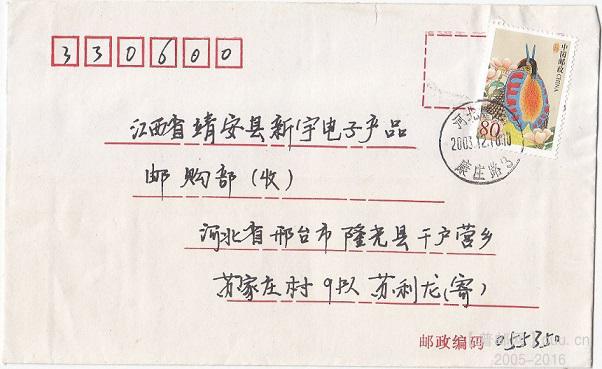 330600
中国邮政 CHINA
80
河北
2003.12.10.10
江西省靖安县新宇电子产品
邮购部(收)
河北省邢台市隆尧县千户营乡
苏家庄村9队 苏利龙(寄)
邮政编码 055350
2005-2016